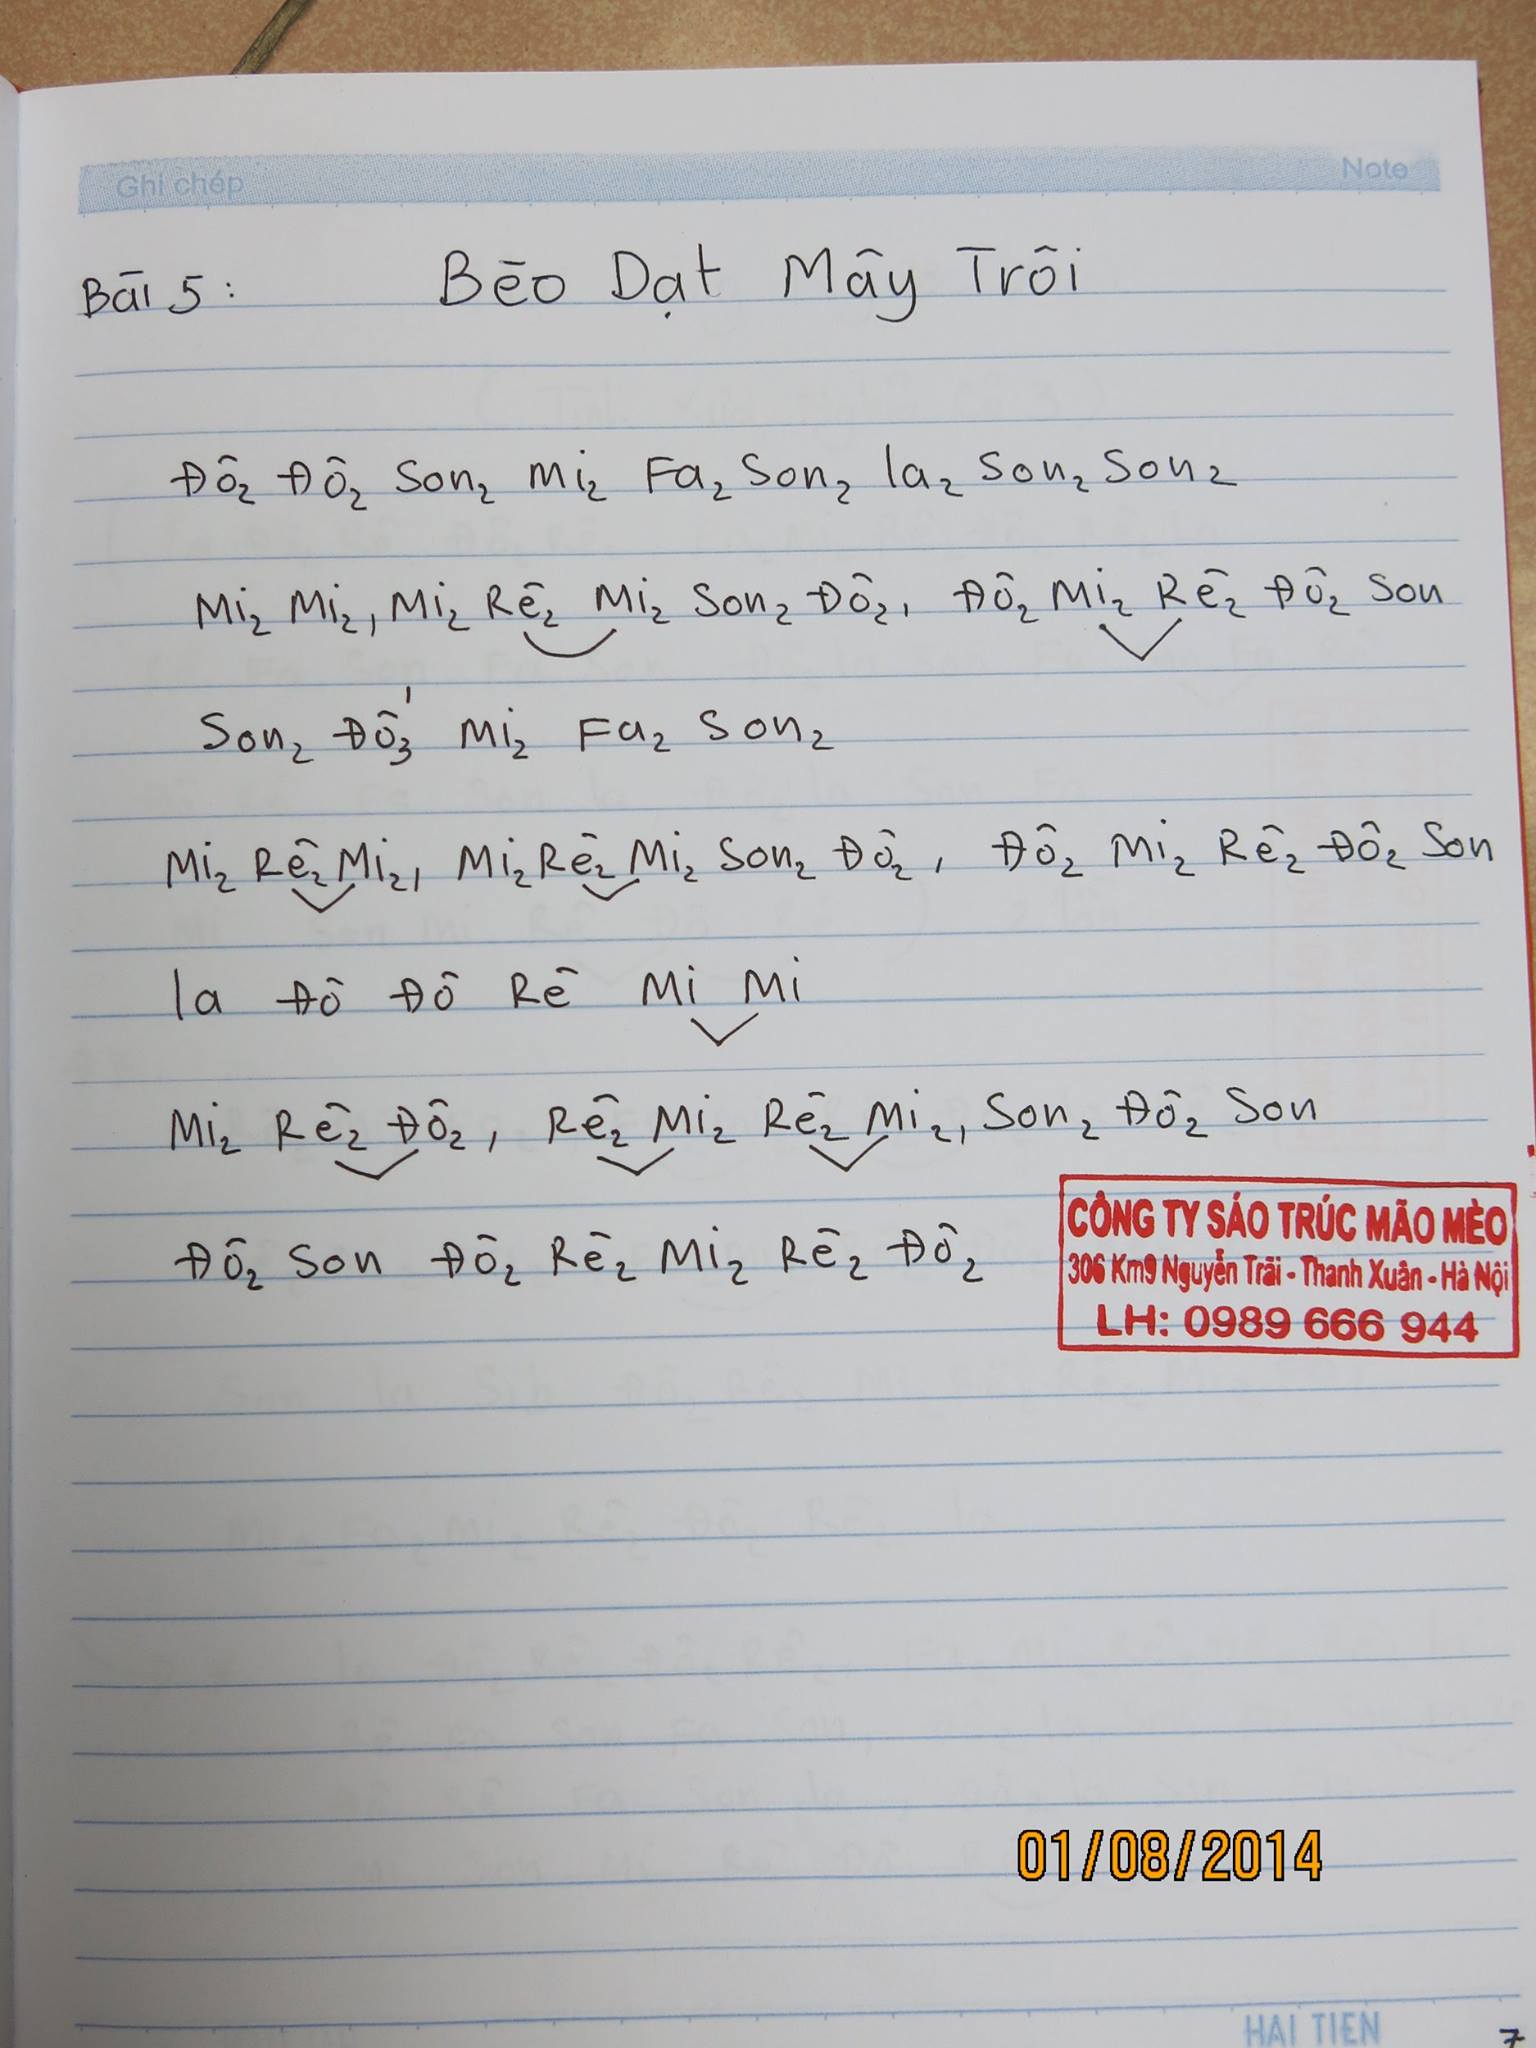 Ghi chép Note
Bài 5 : Bèo Dạt Mây Trôi
Đô₂ Đô₂ Son₂ Mi₂ Fa₂ Son₂ la₂ Son₂ Son₂
Mi₂ Mi₂, Mi₂ Rê₂ Mi₂ Son₂ Đô₂, Đô₂ Mi₂ Rê₂ Đô₂ Son
Son₂ Đố₃ Mi₂ Fa₂ Son₂
Mi₂ Rê₂ Mi₂, Mi₂ Rê₂ Mi₂ Son₂ Đô₂, Đô₂ Mi₂ Rê₂ Đô₂ Son
la Đô Đô Rê Mi Mi
Mi₂ Rê₂ Đô₂, Rê₂ Mi₂ Rê₂ Mi₂, Son₂ Đô₂ Son
Đô₂ Son Đô₂ Rê₂ Mi₂ Rê₂ Đô₂
CÔNG TY SÁO TRÚC MÃO MÈO
306 Km9 Nguyễn Trãi - Thanh Xuân - Hà Nội
LH: 0989 666 944
01/08/2014
HẢI TIẾN
7